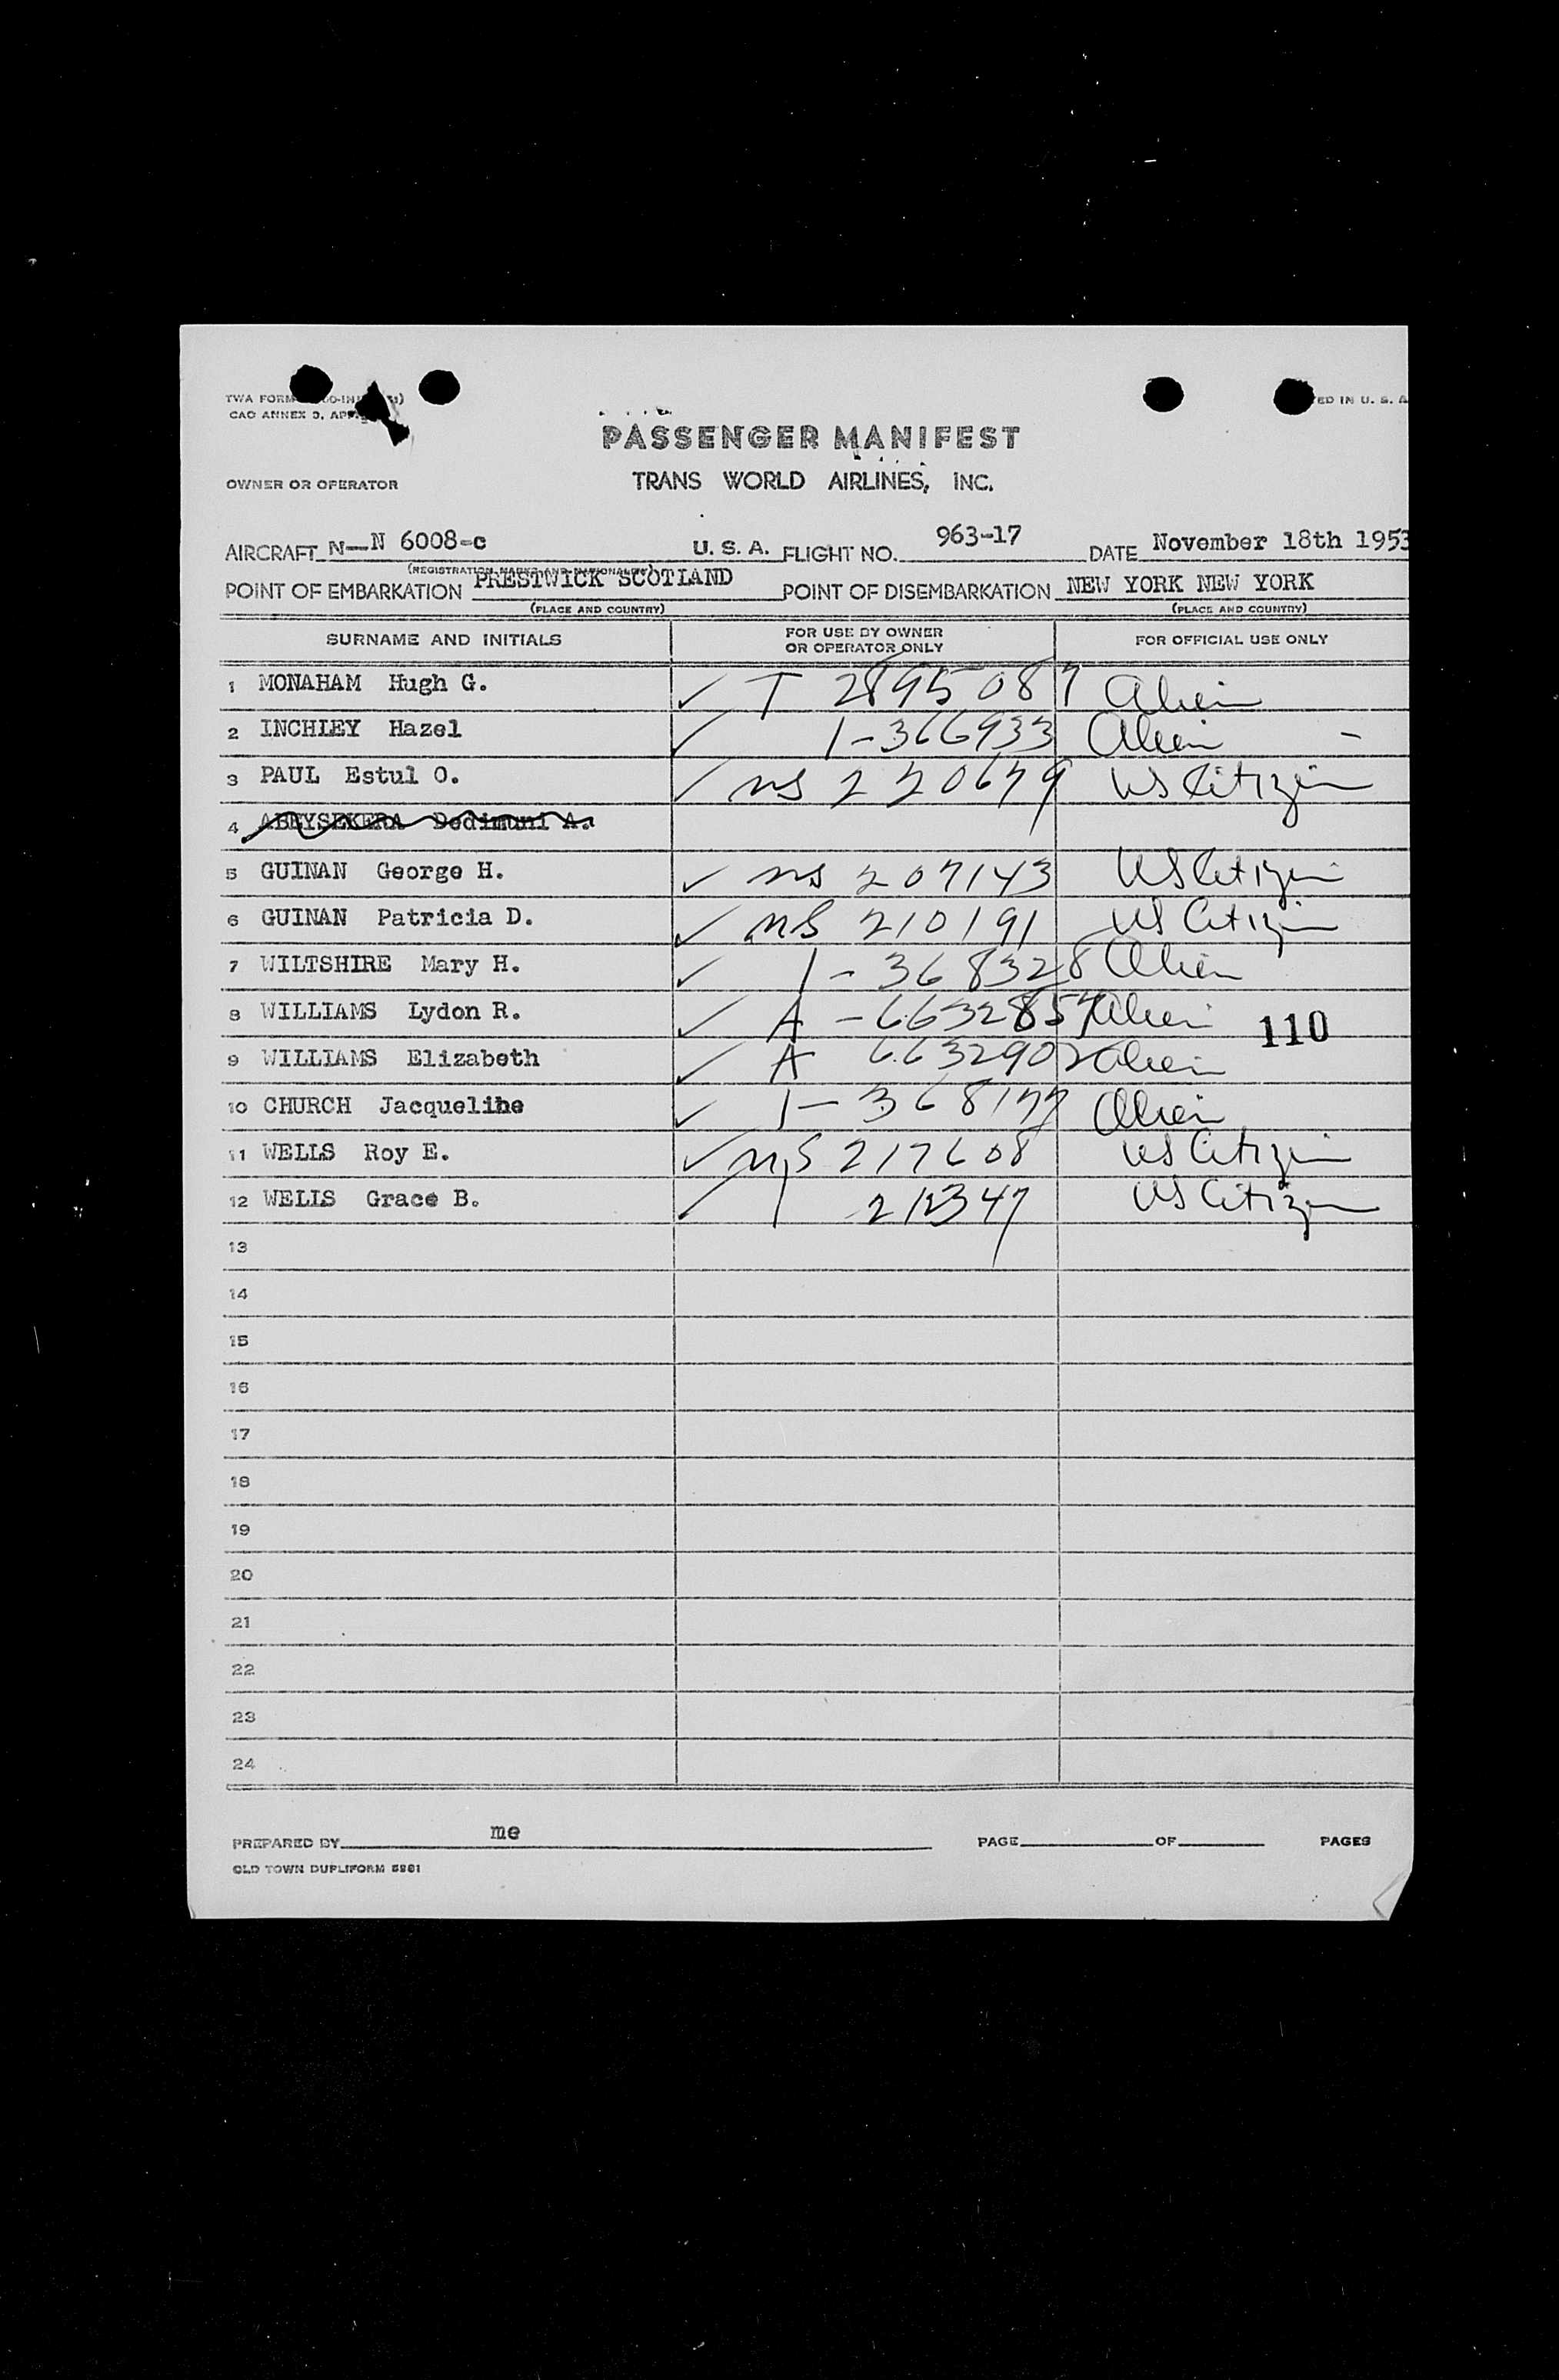 TWA FORM
CAO ANNEX 9, APP.
ED IN U. S. A
PASSENGER MANIFEST
OWNER OR OPERATOR
TRANS WORLD AIRLINES, INC.
AIRCRAFT N—N 6008-c U. S. A. FLIGHT NO. 963-17 DATE November 18th 1953
(REGISTRATION MARKS AND NATIONALITY)
POINT OF EMBARKATION PRESTWICK SCOTLAND POINT OF DISEMBARKATION NEW YORK NEW YORK
(PLACE AND COUNTRY) (PLACE AND COUNTRY)
SURNAME AND INITIALS FOR USE BY OWNER OR OPERATOR ONLY FOR OFFICIAL USE ONLY
1 MONAHAM Hugh G. ✓ T 2895087 Alien
2 INCHLEY Hazel ✓ 1-366933 Alien -
3 PAUL Estul O. ✓ ns 220679 US Citizen
4 ABEYSEKERA Dedimuni A.
5 GUINAN George H. ✓ ns 207143 US Citizen
6 GUINAN Patricia D. ✓ ns 210191 US Citizen
7 WILTSHIRE Mary H. ✓ 1-368328 Alien
8 WILLIAMS Lydon R. ✓ A-6632857 Alien
110
9 WILLIAMS Elizabeth ✓ A 6632902 Alien
10 CHURCH Jacqueline ✓ 1-368177 Alien
11 WELLS Roy E. ✓ ns 217608 US Citizen
12 WELLS Grace B. ✓ 212347 US Citizen
13
14
15
16
17
18
19
20
21
22
23
24
PREPARED BY me PAGE OF PAGES
OLD TOWN DUPLIFORM 5981